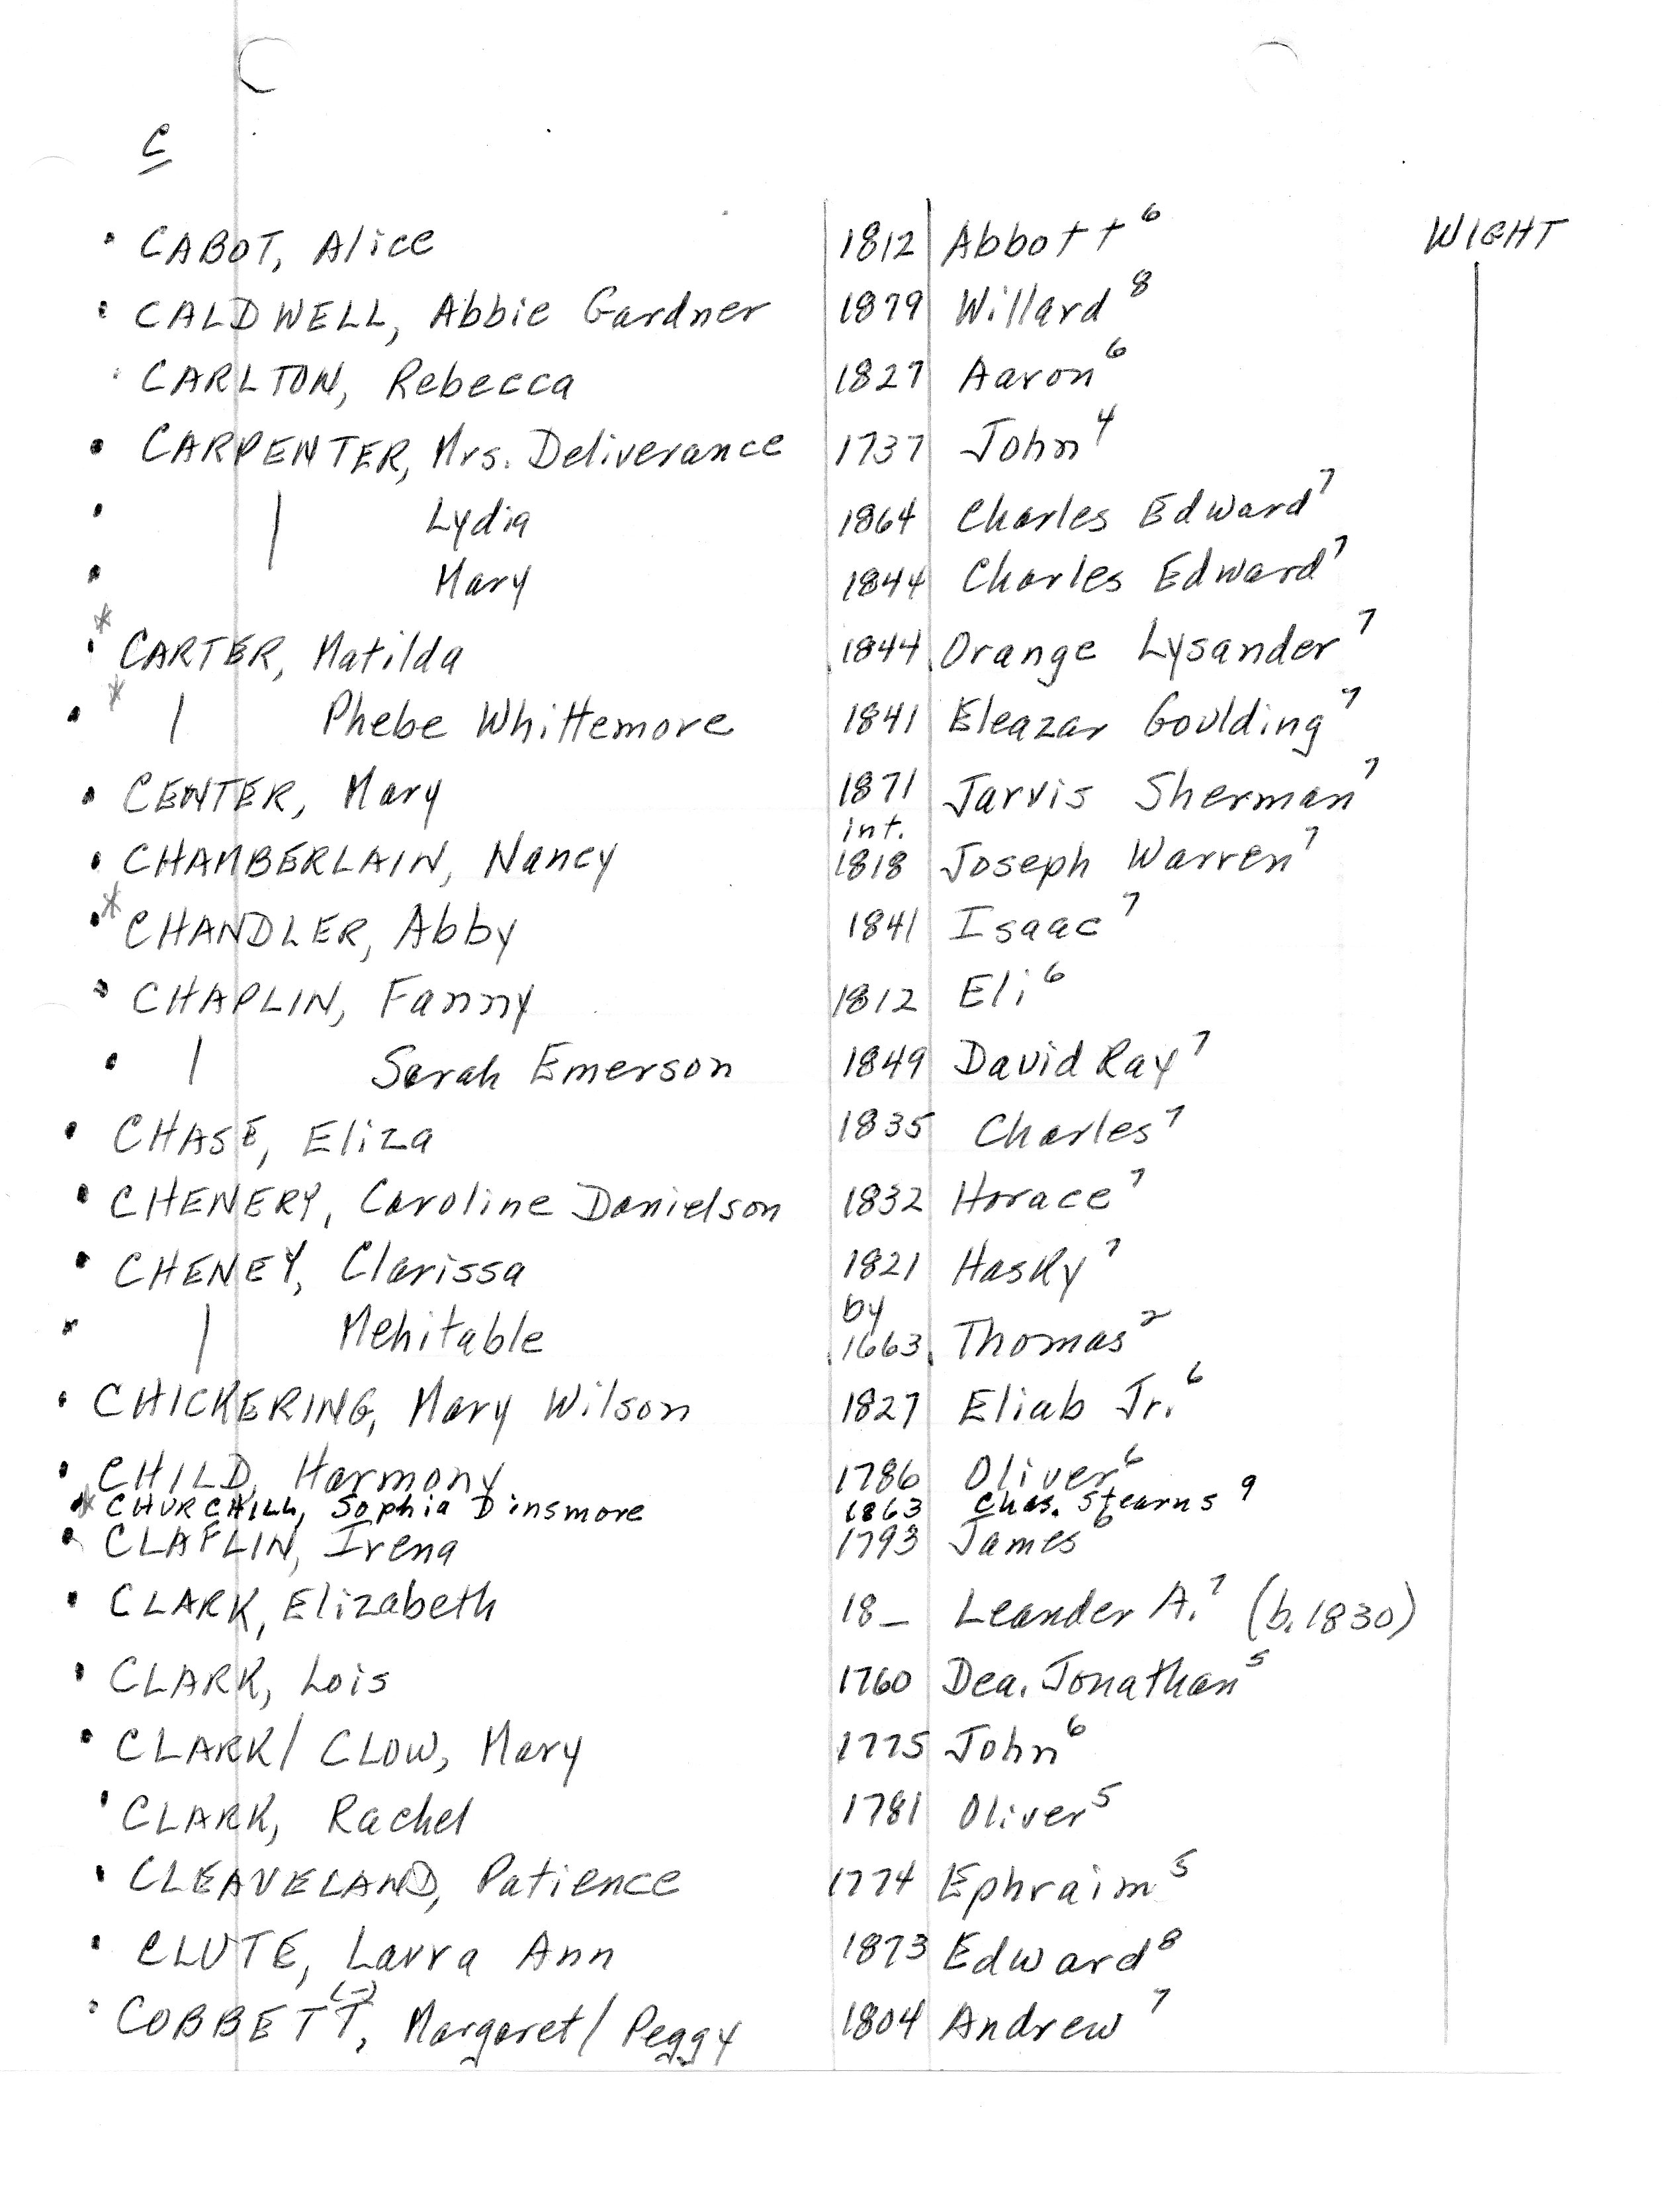 C
• CABOT, Alice 1812 Abbott⁶ WIGHT
• CALDWELL, Abbie Gardner 1879 Willard⁸
• CARLTON, Rebecca 1827 Aaron⁶
• CARPENTER, Mrs. Deliverance 1737 John⁴
• | Lydia 1864 Charles Edward⁷
• | Mary 1844 Charles Edward⁷
•* CARTER, Matilda 1844 Orange Lysander⁷
•* | Phebe Whittemore 1841 Eleazar Goulding⁷
• CENTER, Mary 1871 Jarvis Sherman⁷
int.
• CHAMBERLAIN, Nancy 1818 Joseph Warren⁷
•* CHANDLER, Abby 1841 Isaac⁷
• CHAPLIN, Fanny 1812 Eli⁶
• | Sarah Emerson 1849 David Ray⁷
• CHASE, Eliza 1835 Charles⁷
• CHENERY, Caroline Danielson 1832 Horace⁷
• CHENEY, Clarissa 1821 Hasky⁷
by
• | Mehitable 1663 Thomas²
• CHICKERING, Mary Wilson 1827 Eliab Jr.⁶
• CHILD, Harmony 1786 Oliver⁶
•* CHURCHILL, Sophia Dinsmore 1863 Chas. Stearns⁹
• CLAFLIN, Irena 1793 James⁶
• CLARK, Elizabeth 18_ Leander A.⁷ (b. 1830)
• CLARK, Lois 1760 Dea. Jonathan⁵
• CLARK/CLOW, Mary 1775 John⁶
• CLARK, Rachel 1781 Oliver⁵
• CLEAVELAND, Patience 1774 Ephraim⁵
• CLUTE, Laura Ann 1873 Edward⁸
• COBBETT(-), Margaret/Peggy 1804 Andrew⁷